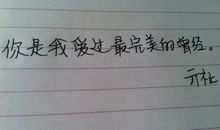 你是我爱过最完美的曾经。
亓祉